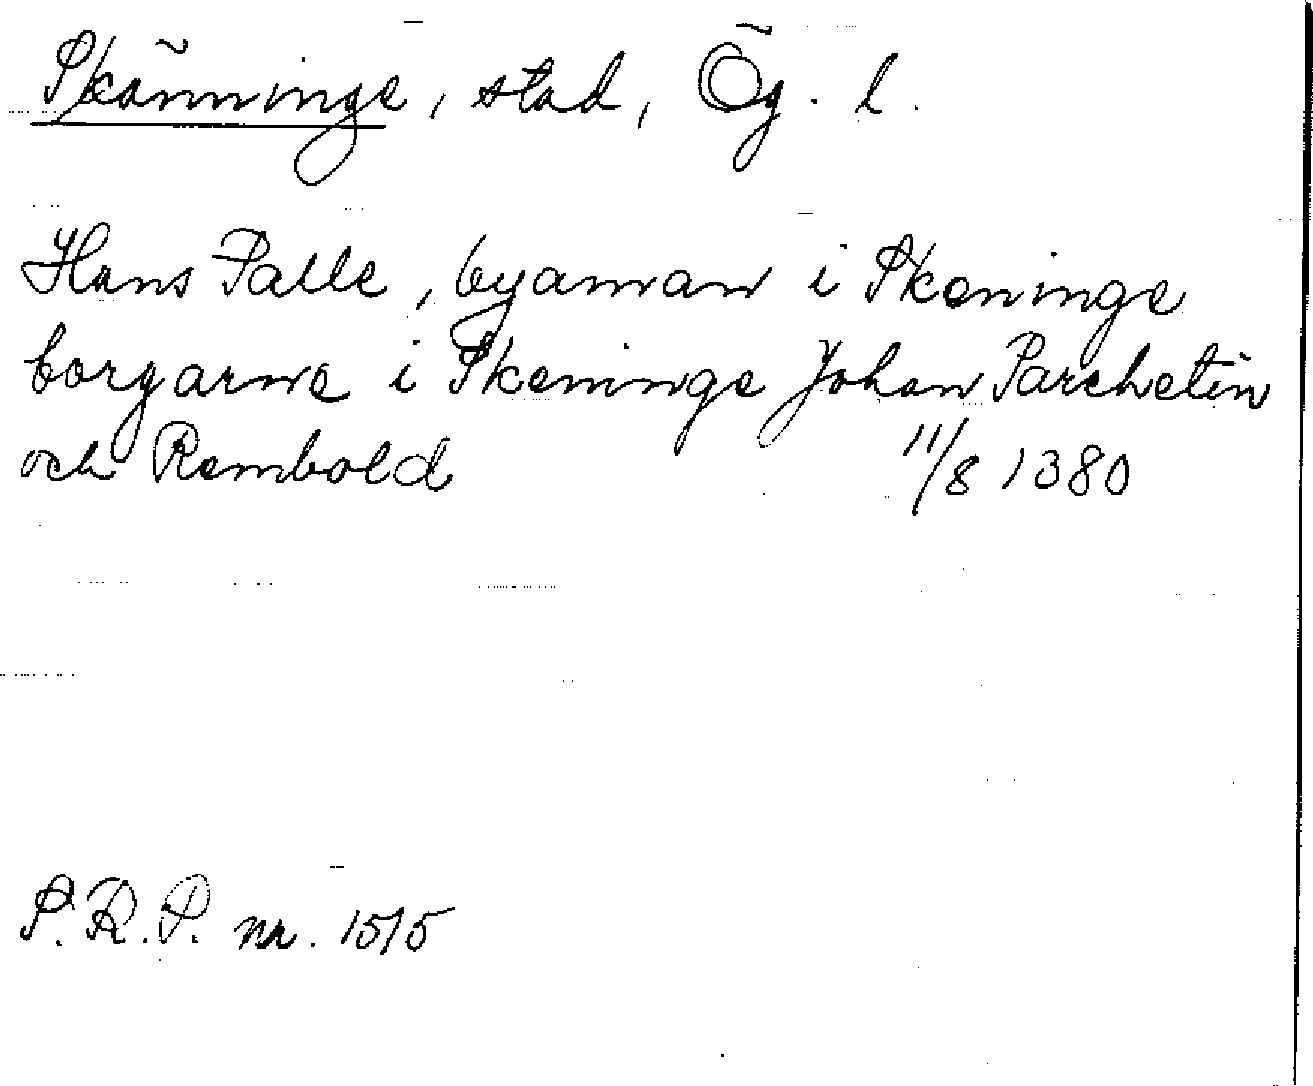 Skänninge, stad, Ög. l.
Hans Palle, byaman i Skeninge
borgarne i Skeninge Johan Parchetin
och Rembold 11/8 1380
S.R.P. nr. 1515